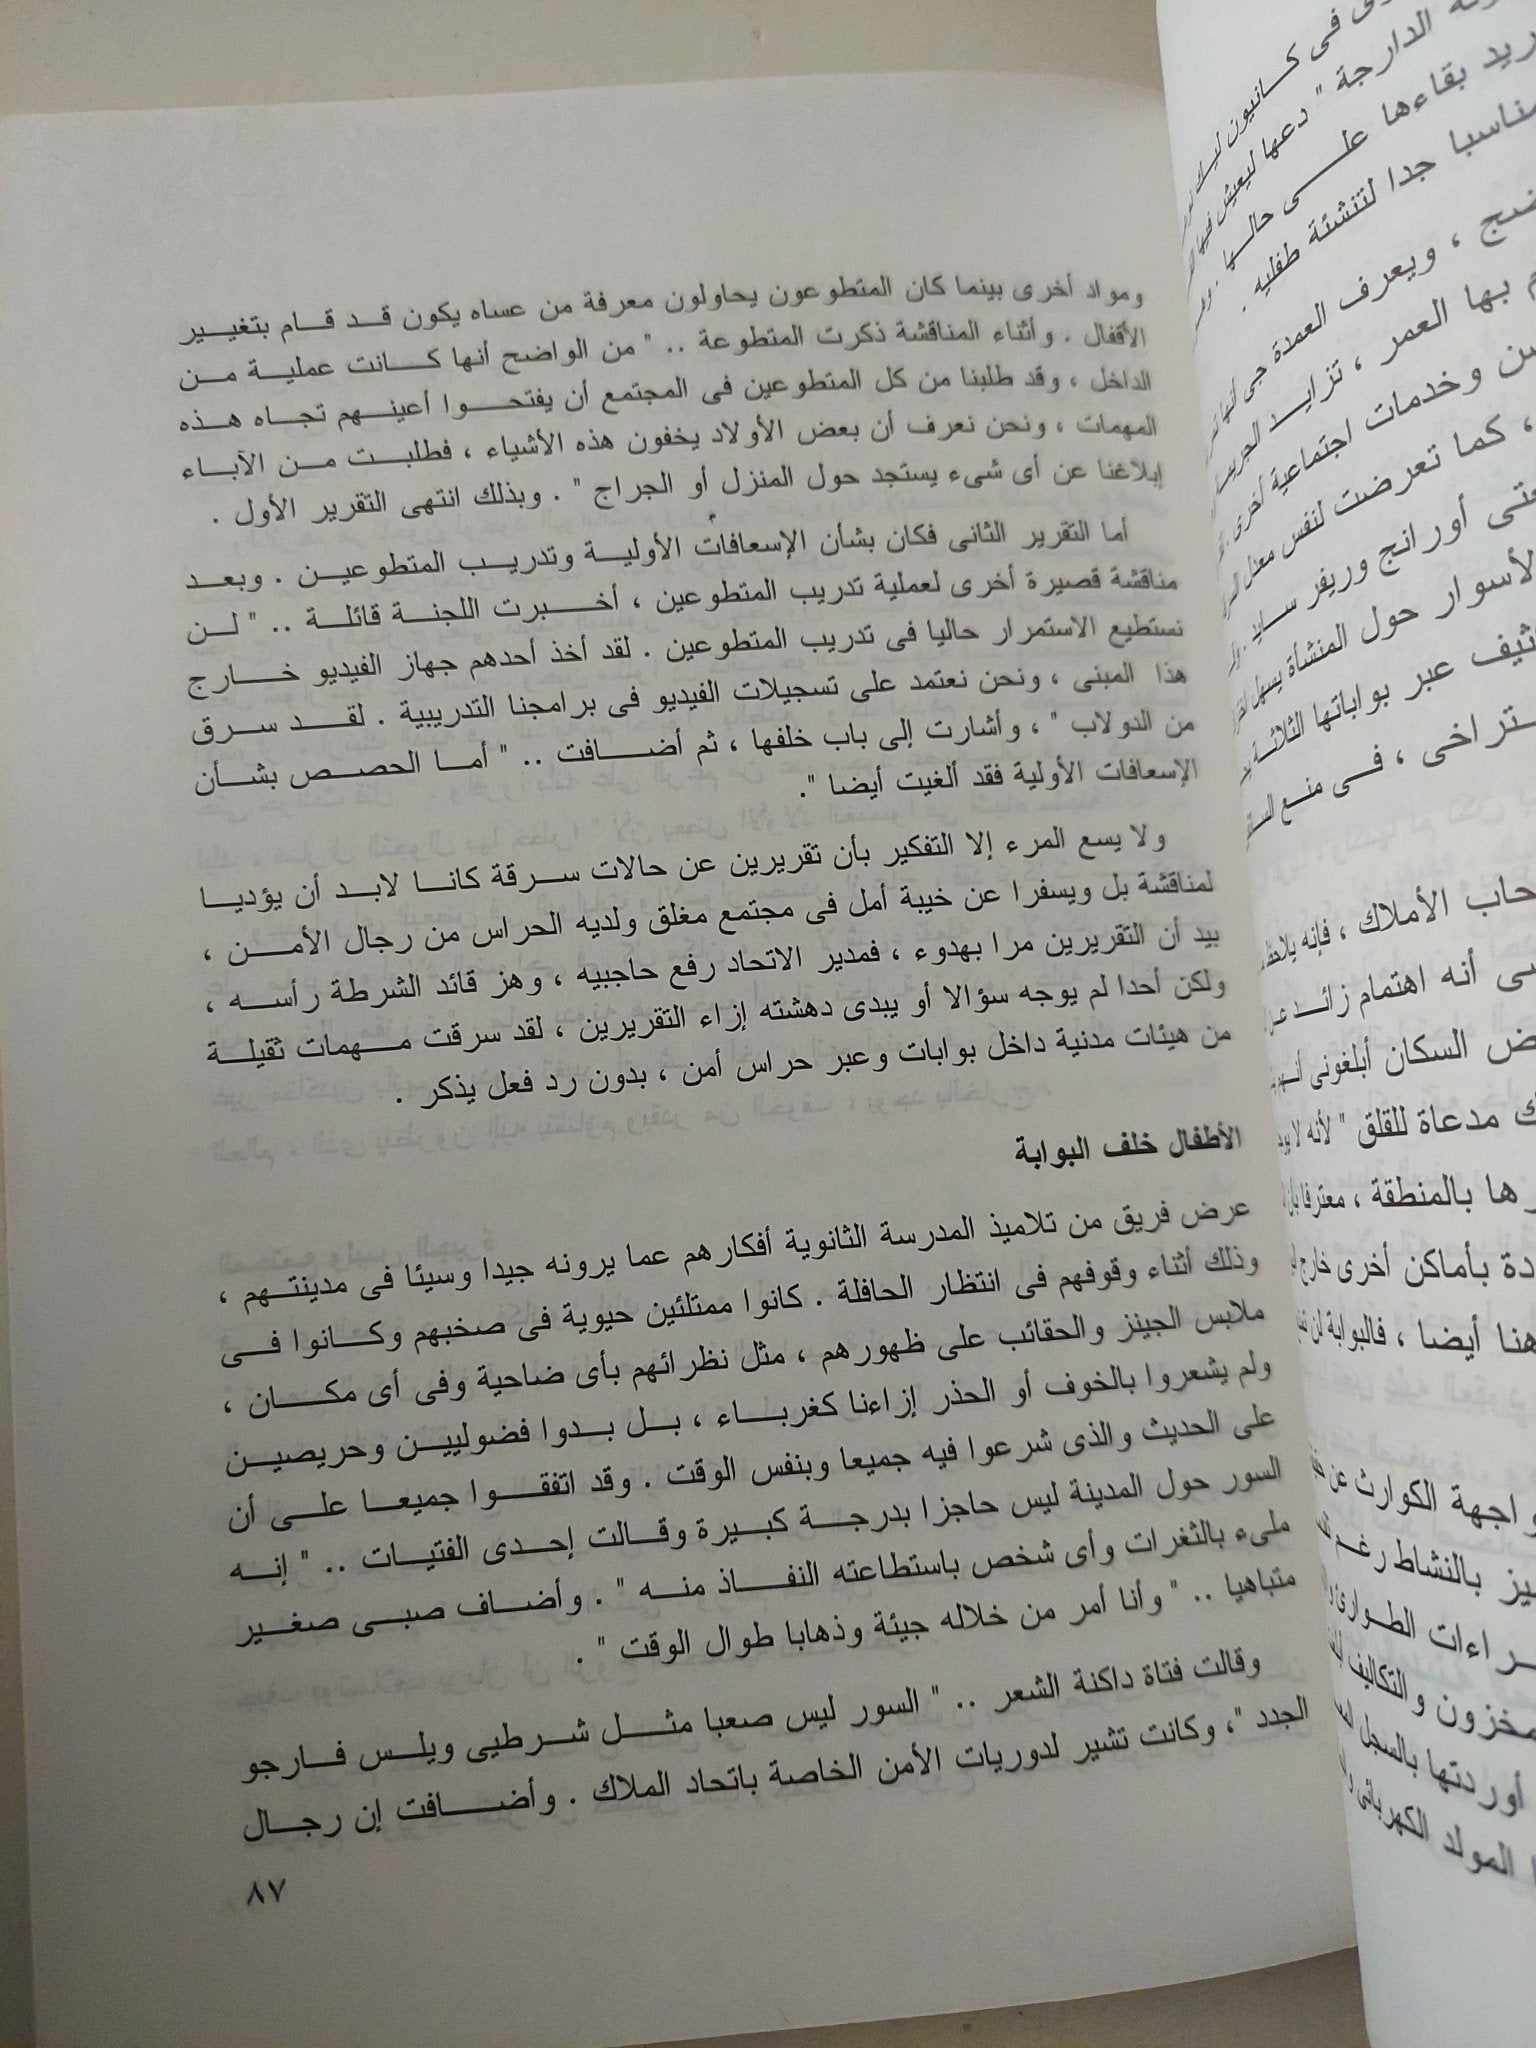 ومواد أخرى بينما كان المتطوعون يحاولون معرفة من عساه يكون قد قام بتغيير
الأقفال . وأثناء المناقشة ذكرت المتطوعة .. " من الواضح أنها كانت عملية من
الداخل ، وقد طلبنا من كل المتطوعين فى المجتمع أن يفتحوا أعينهم تجاه هذه
المهمات ، ونحن نعرف أن بعض الأولاد يخفون هذه الأشياء ، فطلبت من الآباء
إبلاغنا عن أى شىء يستجد حول المنزل أو الجراج " . وبذلك انتهى التقرير الأول .
أما التقرير الثانى فكان بشأن الإسعافات الأولية وتدريب المتطوعين . وبعد
مناقشة قصيرة أخرى لعملية تدريب المتطوعين ، أخبرت اللجنة قائلة .. " لن
نستطيع الاستمرار حاليا فى تدريب المتطوعين . لقد أخذ أحدهم جهاز الفيديو خارج
هذا المبنى ، ونحن نعتمد على تسجيلات الفيديو فى برامجنا التدريبية . لقد سرق
من الدولاب " ، وأشارت إلى باب خلفها ، ثم أضافت .. " أما الحصص بشأن
الإسعافات الأولية فقد ألغيت أيضا ".
ولا يسع المرء إلا التفكير بأن تقريرين عن حالات سرقة كانا لابد أن يؤديا
لمناقشة بل ويسفرا عن خيبة أمل فى مجتمع مغلق ولديه الحراس من رجال الأمن ،
بيد أن التقريرين مرا بهدوء ، فمدير الاتحاد رفع حاجبيه ، وهز قائد الشرطة رأسه ،
ولكن أحدا لم يوجه سؤالا أو يبدى دهشته إزاء التقريرين ، لقد سرقت مهمات ثقيلة
من هيئات مدنية داخل بوابات وعبر حراس أمن ، بدون رد فعل يذكر .
الأطفال خلف البوابة
عرض فريق من تلاميذ المدرسة الثانوية أفكارهم عما يرونه جيدا وسيئا فى مدينتهم ،
وذلك أثناء وقوفهم فى انتظار الحافلة . كانوا ممتلئين حيوية فى صخبهم وكانوا فى
ملابس الجينز والحقائب على ظهورهم ، مثل نظرائهم بأى ضاحية وفى أى مكان ،
ولم يشعروا بالخوف أو الحذر إزاءنا كغرباء ، بل بدوا فضوليين وحريصين
على الحديث والذى شرعوا فيه جميعا وبنفس الوقت . وقد اتفقوا جميعا على أن
السور حول المدينة ليس حاجزا بدرجة كبيرة وقالت إحدى الفتيات .. " إنه
ملىء بالثغرات وأى شخص باستطاعته النفاذ منه " . وأضاف صبى صغير
متباهيا .. " وأنا أمر من خلاله جيئة وذهابا طوال الوقت " .
وقالت فتاة داكنة الشعر .. " السور ليس صعبا مثل شرطيى ويلس فارجو
الجدد "، وكانت تشير لدوريات الأمن الخاصة باتحاد الملاك . وأضافت إن رجال
٨٧
فى كانيون ليك
الدارجة " دعها ليعيش فيها
بقاءها على حالها .
جدا لتنشئة طفليه .
، ويعرف العمدة جى أنها
بها العمر ، تزايد
وخدمات اجتماعية أخرى .
، كما تعرضت لنفس معدل
أورانج وريفر سايد .
حول المنشأة يسهل
عبر بواباتها الثلاثة
، فى منع
الأملاك ، فإنه
أنه اهتمام زائد
السكان أبلغونى
مدعاة للقلق " لأنه لا
بالمنطقة ، معترفا
بأماكن أخرى خارج
هنا أيضا ، فالبوابة لن
الكوارث عن
بالنشاط رغم
الطوارئ
والتكاليف
أوردتها بالسجل
المولد الكهربائى